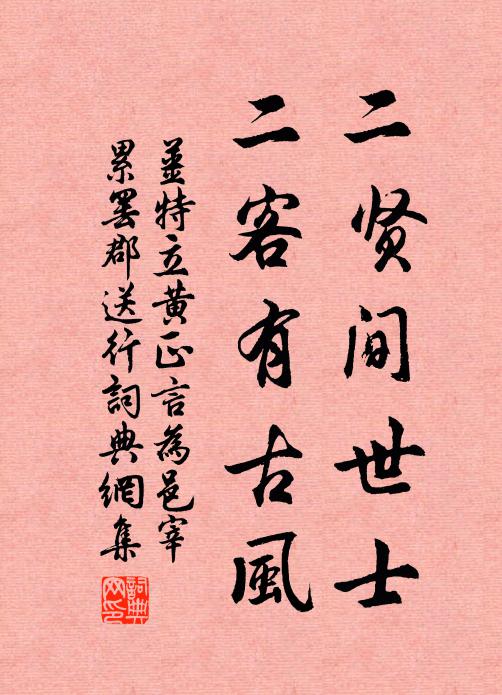 二贤间世士
二客有古風
姜特立黄正言為邑宰
累罢郡送行詞典網集
詞典网印